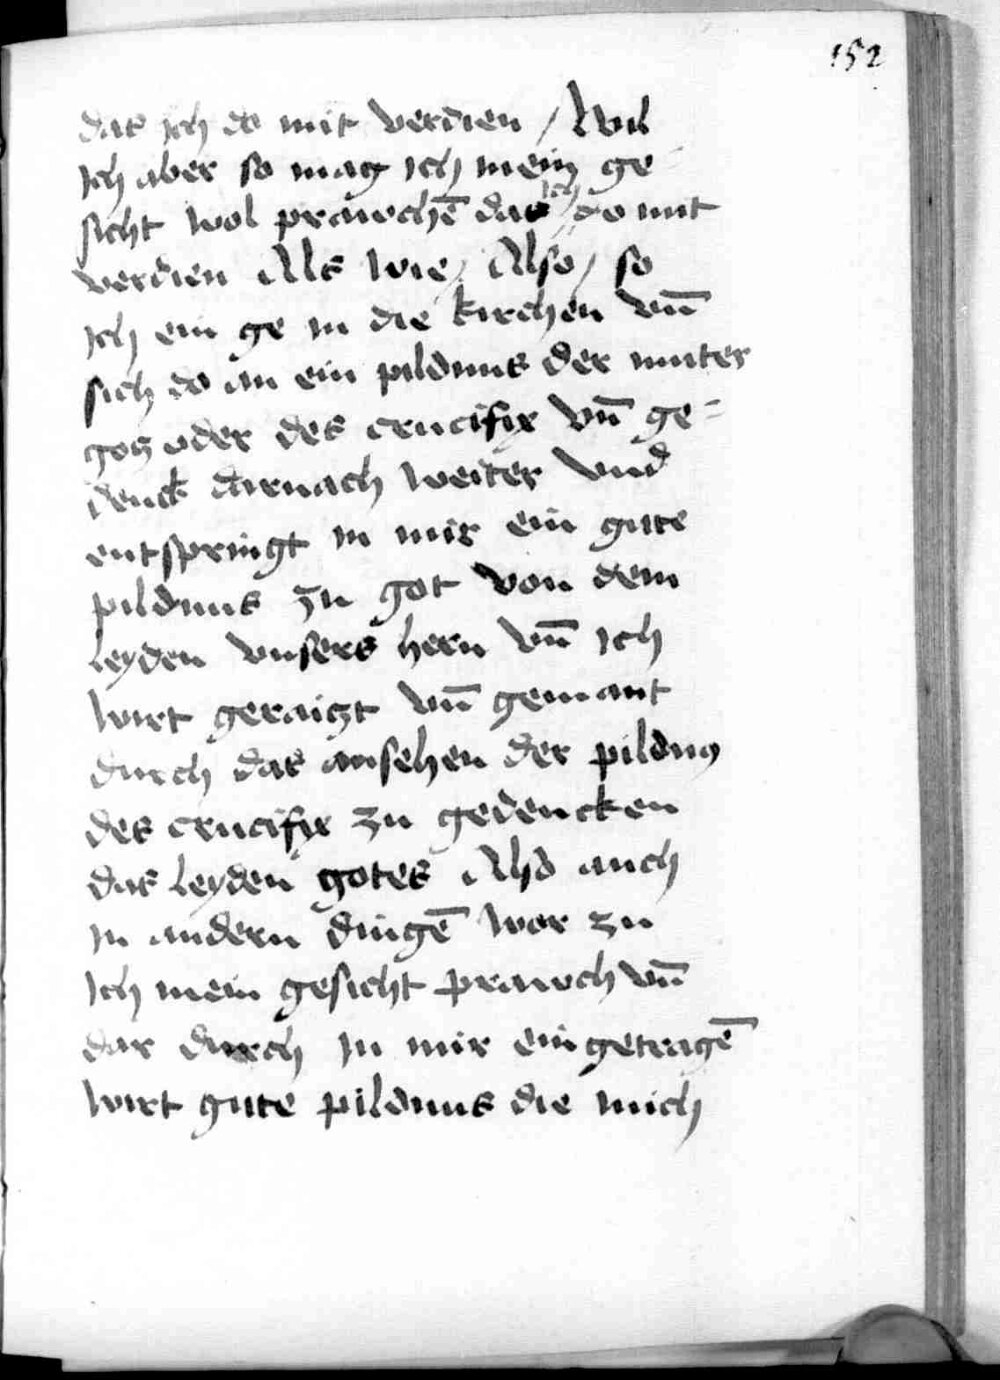 152
das ich do mit verdien / Wil
Ich aber so mag Ich mein ge-
sicht wol prauchē das ich do mit
verdien Als wie / Also / so
Ich ein ge in die kirchen vn̄
sich do an ein pildnus der muter
gotz oder des crucifix vn̄ ge-
denck darnach weiter vnd
entspringt in mir ein gute
pildnus zu got von dem
leyden vnsers hern vn̄ Ich
wirt geraitzt vn̄ gemant
durch das ansehen der pildnus
des crucifix zu gedencken
das leyden gotes Also auch
in andern dingē wor zu
Ich mein gesicht prauch vn̄
dar durch in mir ein getragē
wirt gute pildnus die mich